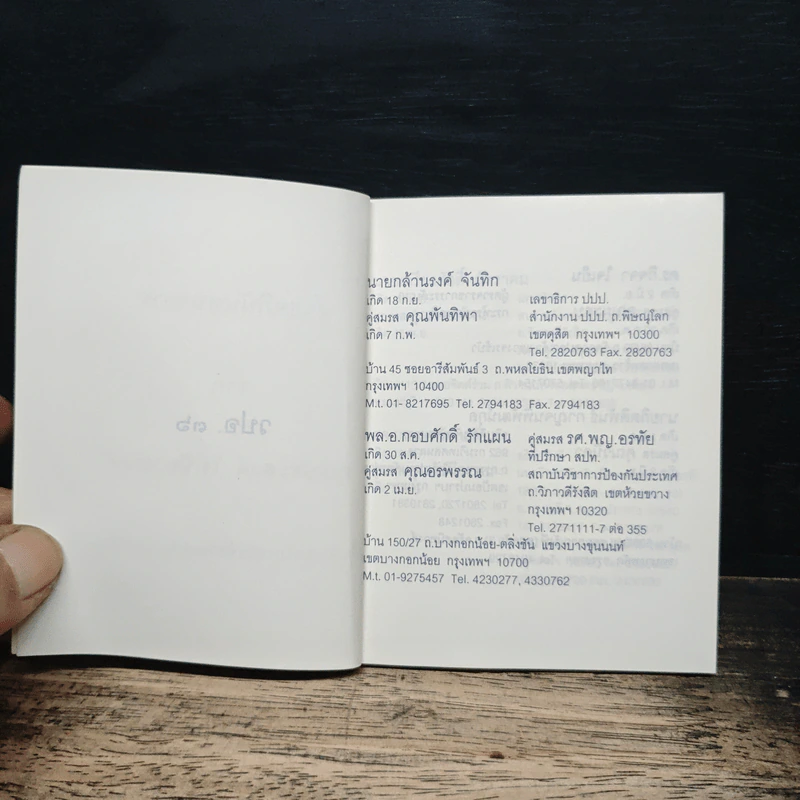 นายกล้านรงค์ จันทิก
เกิด 18 ก.ย.
คู่สมรส คุณพันทิพา
เกิด 7 ก.พ.
เลขาธิการ ปปป.
สำนักงาน ปปป. ถ.พิษณุโลก
เขตดุสิต กรุงเทพฯ 10300
Tel. 2820763 Fax. 2820763
บ้าน 45 ซอยอารีสัมพันธ์ 3 ถ.พหลโยธิน เขตพญาไท
กรุงเทพฯ 10400
M.t. 01-8217695 Tel. 2794183 Fax. 2794183
พล.อ.กอบศักดิ์ รักแผน
เกิด 30 ส.ค.
คู่สมรส คุณอรพรรณ
เกิด 2 เม.ย.
คู่สมรส รศ.พญ.อรทัย
ที่ปรึกษา สปท.
สถาบันวิชาการป้องกันประเทศ
ถ.วิภาวดีรังสิต เขตห้วยขวาง
กรุงเทพฯ 10320
Tel. 2771111-7 ต่อ 355
บ้าน 150/27 ถ.บางกอกน้อย-ตลิ่งชัน แขวงบางขุนนนท์
เขตบางกอกน้อย กรุงเทพฯ 10700
M.t. 01-9275457 Tel. 4230277, 4330762